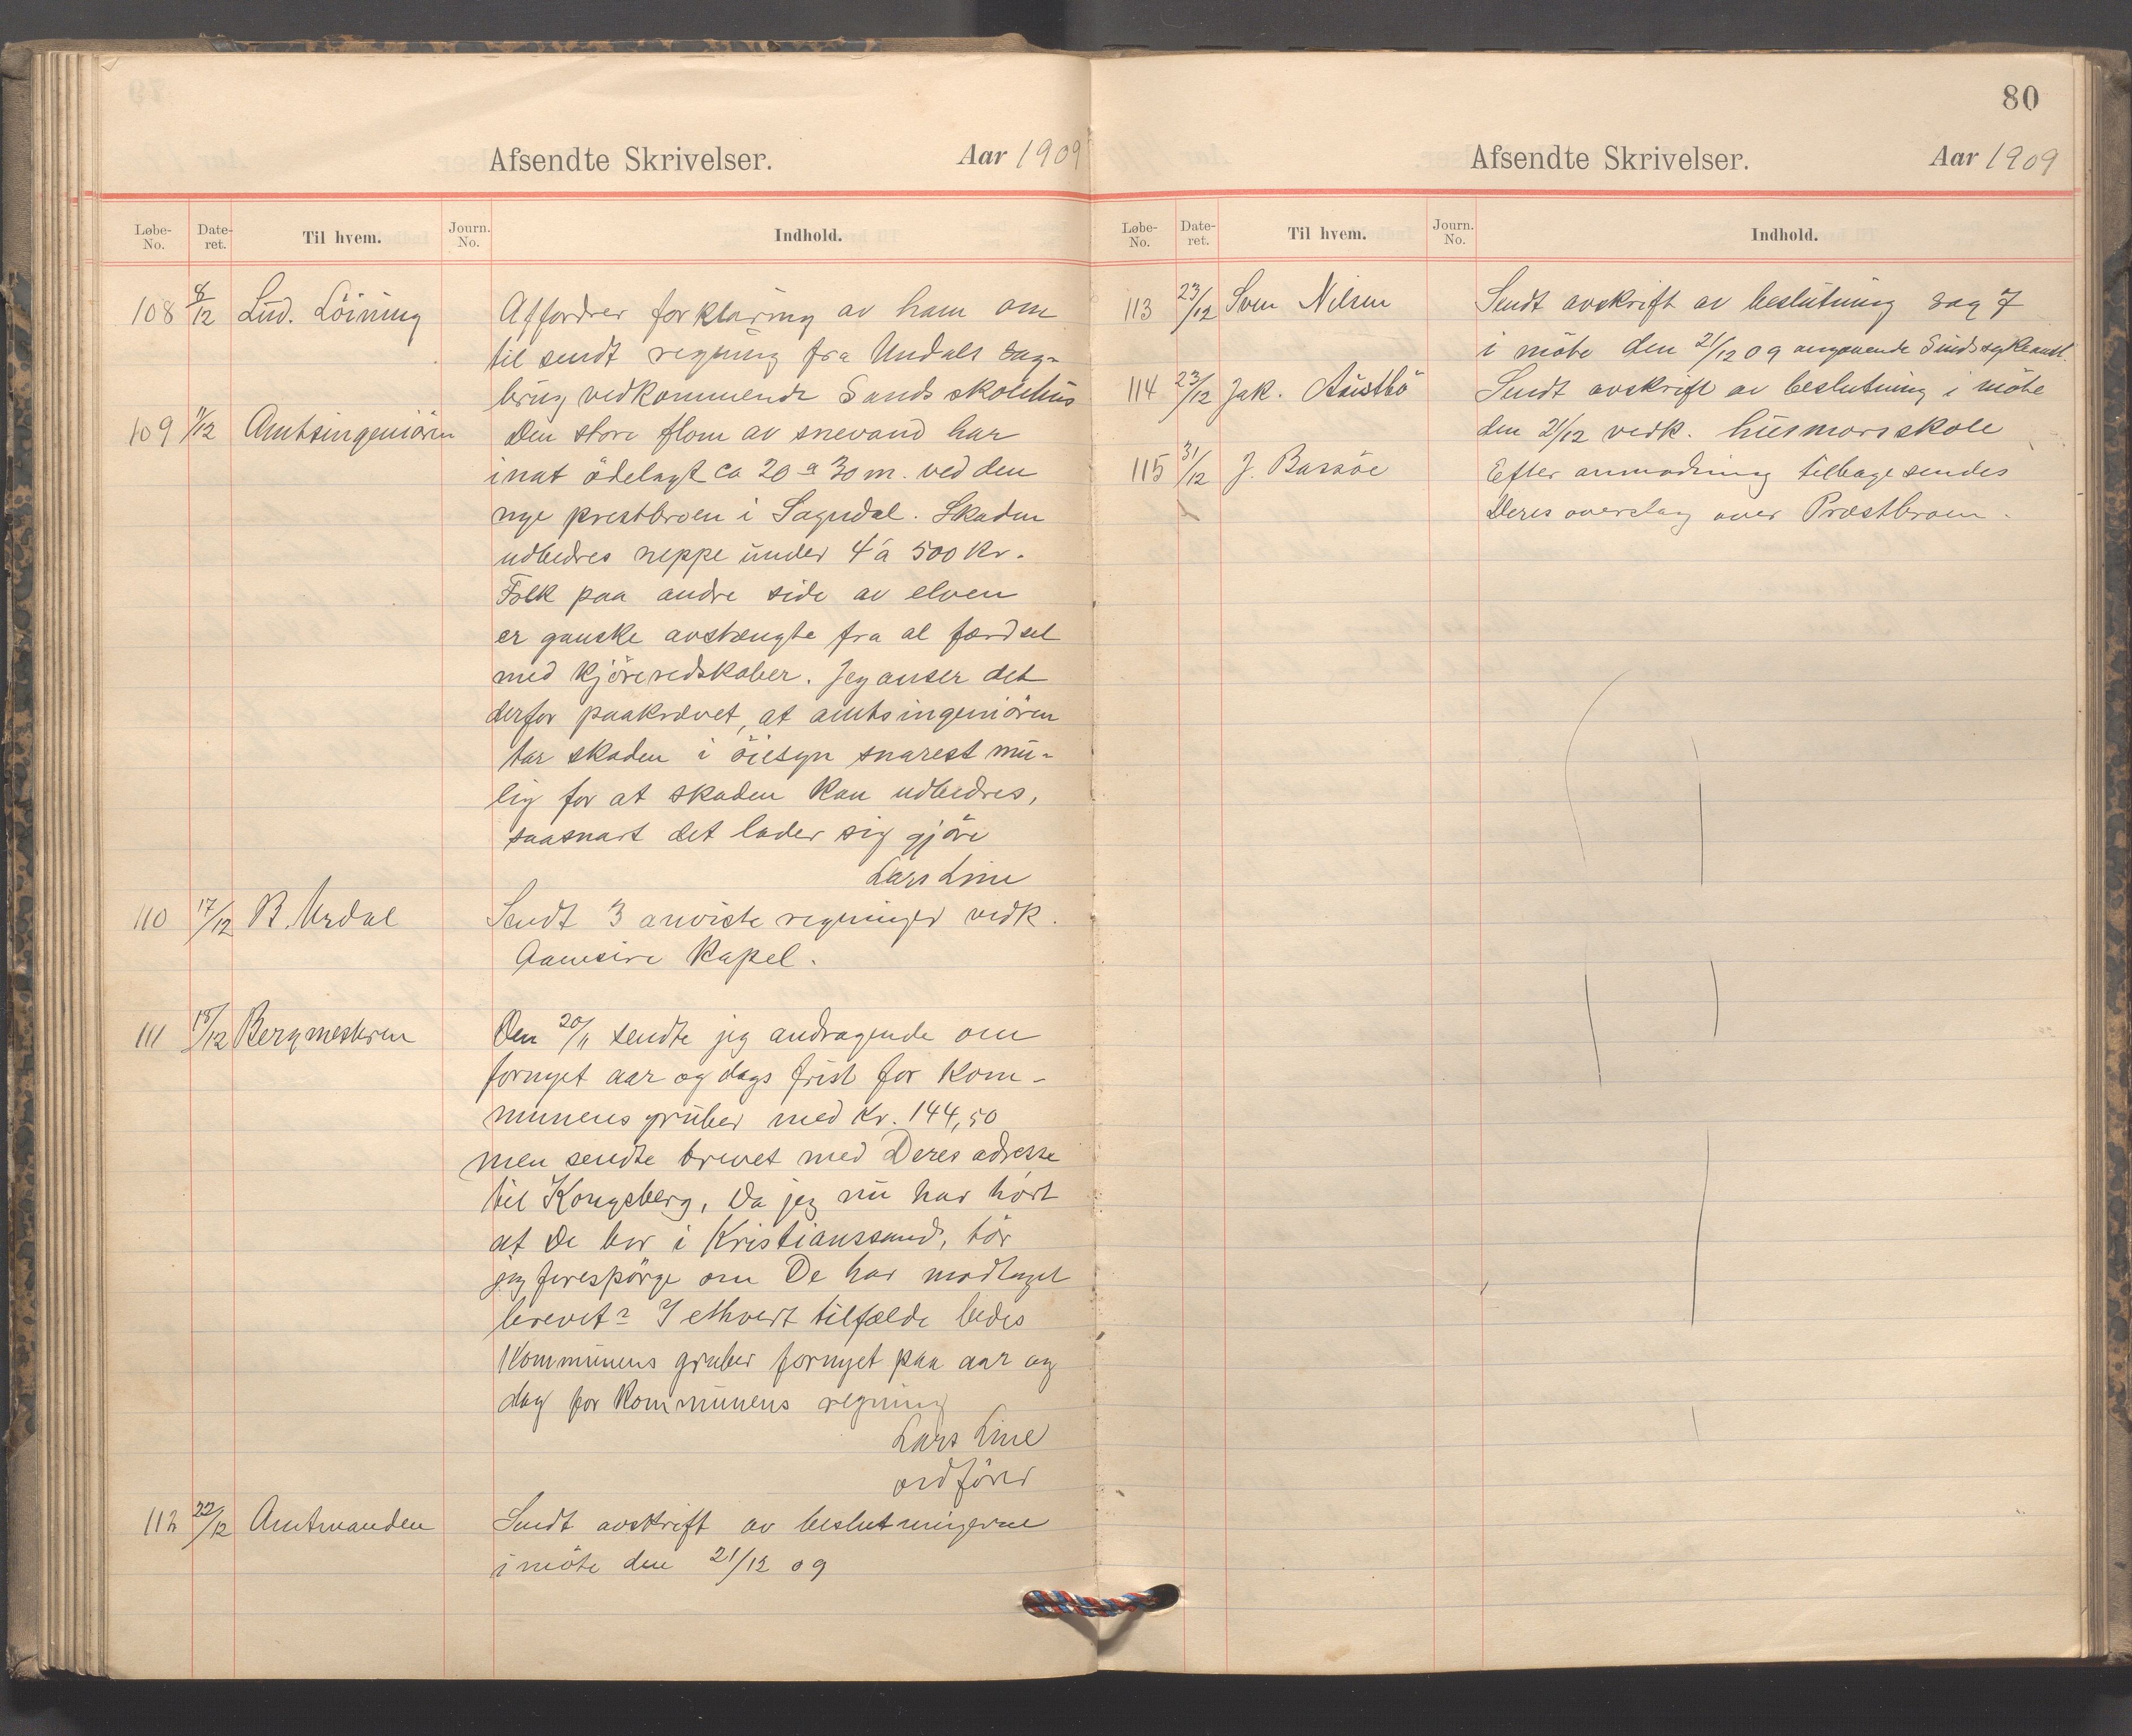 Afsendte Skrivelser. Aar 1909
Løbe-No. Date-ret. Til hvem. Journ. No. Indhold.
108 8/12 Lud. Löining Affordrer forklaring av ham om
til sendt regning fra Undals sag-
brug vedkommende Sands skolehus
109 9/12 Amtsingeniören Den store flom av snevand har
inat ödelagt ca 20 a 30 m. ved den
nye prestbroen i Sogndal. Skaden
udbedres neppe under 4 á 500 kr.
Folk paa andre side av elven
er ganske avstængte fra al færdsel
med kjöreredskaber. Jeg anser det
derfor paakrævet, at amtsingeniören
tar skaden i öiesyn snarest mu-
lig for at skaden kan udbedres,
saasnart det lader sig gjöre
Lars Line
110 17/12 B. Urdal Sendt 3 anviste regninger vedk.
Aanesire kapel.
111 18/12 Bergmesteren Den 20/11 sendte jeg andragende om
fornyet aar og dags frist for kom-
munens gruber med kr. 144,50
men sendte brevet med Deres adresse
til Kongsberg. Da jeg nu har hört
at De bor i Kristianssand, tör
jeg forespörge om De har modtaget
brevet? I ethvert tilfælde bedes
Kommunens gruber fornyet paa aar og
dag for kommunens regning
Lars Line
ordförer
112 22/12 Amtmanden Sendt avskrift av beslutningerne
i möte den 21/12 09
80
Afsendte Skrivelser. Aar 1909
Løbe-No. Date-ret. Til hvem. Journ. No. Indhold.
113 23/12 Sven Nilsen Sendt avskrift av beslutning sag 7
i möte den 21/12 09 angaaende Sindssykeanst.
114 23/12 Jak. Austbö Sendt avskrift av beslutning i möte
den 21/12 vedk. husmorskole
115 31/12 J. Barsöe Efter anmodning tilbagesendes
Deres overslag over Præstbroen.